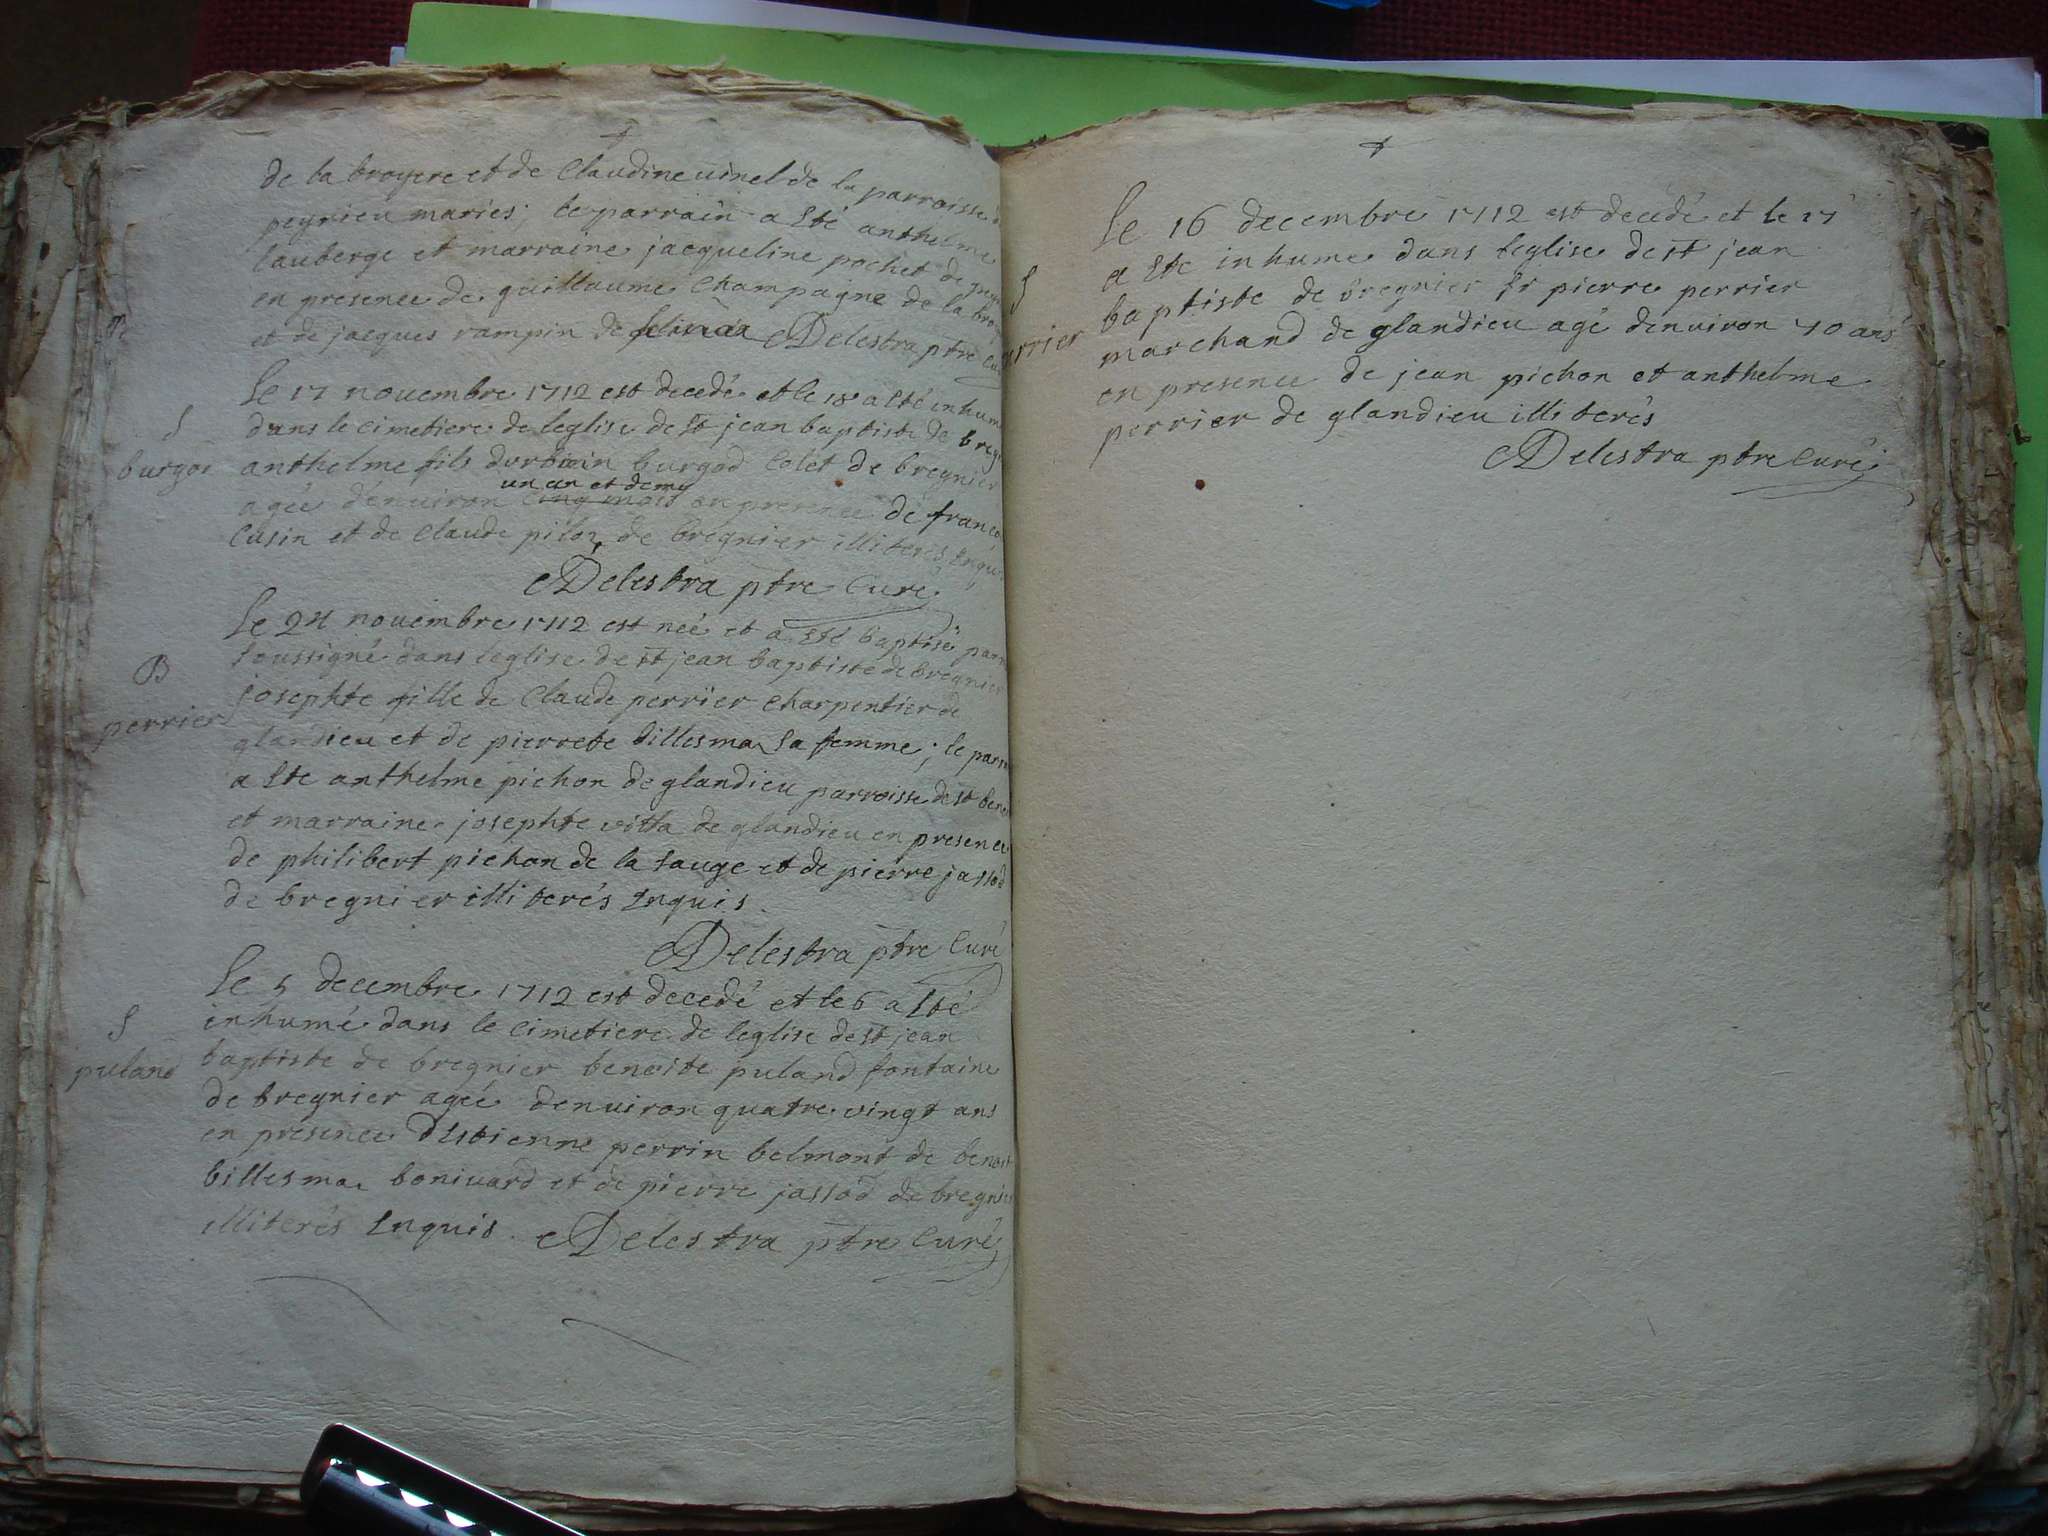 de la broyere et de Claudine vinel de la parroisse
peyrieu mariés; le parrain a Eté anthelme
lauberge et marraine jacqueline pochet de
en presence de guillaume Champagne de la
et de jacques rampin de Delestra ptre
Le 17 novembre 1712 est decedé et le 18 a Eté inhum
S
burgod
dans le cimetiere de leglise de st jean baptiste de breg
anthelme fils durbain burgod Colet de bregnier
un an et demy
ageé denuiron cinq mois en presence de franço
Cusin et de Claude piloz de bregnier illiterés Enqu
Delestra ptre Curé
Le 24 novembre 1712 est neé et a Eté baptisé par
soussigné dans leglise de st jean baptiste de bregnier
B
perrier
josephte fille de Claude perrier Charpentier de
glandieu et de pierrete billesmaz sa femme; le parr
a Ete anthelme pichon de glandieu parroisse de st beno
et marraine josephte vitta de glandieu en presence
de philibert pichon de la sauge et de pierre jassod
de bregnier illiterés Enquis
Delestra ptre Curé
Le 5 decembre 1712 est decedé et le 6 a Eté
S
puland
inhumé dans le cimetiere de leglise de st jean
baptiste de bregnier benoite puland fontaine
de bregnier ageé denuiron quatre vingt ans
en presence dEstienne perrin belmont de benoit
billesmaz bonivard et de pierre jassod de bregnier
illiterés Enquis. Delestra ptre Curé
Le 16 decembre 1712 est decedé et le 17
S
rrier
a Ete inhumé dans leglise de st jean
baptiste de bregnier Sr pierre perrier
marchand de glandieu agé denuiron 40 ans
en presence de jean pichon et anthelme
perrier de glandieu illiterés
Delestra ptre Curé